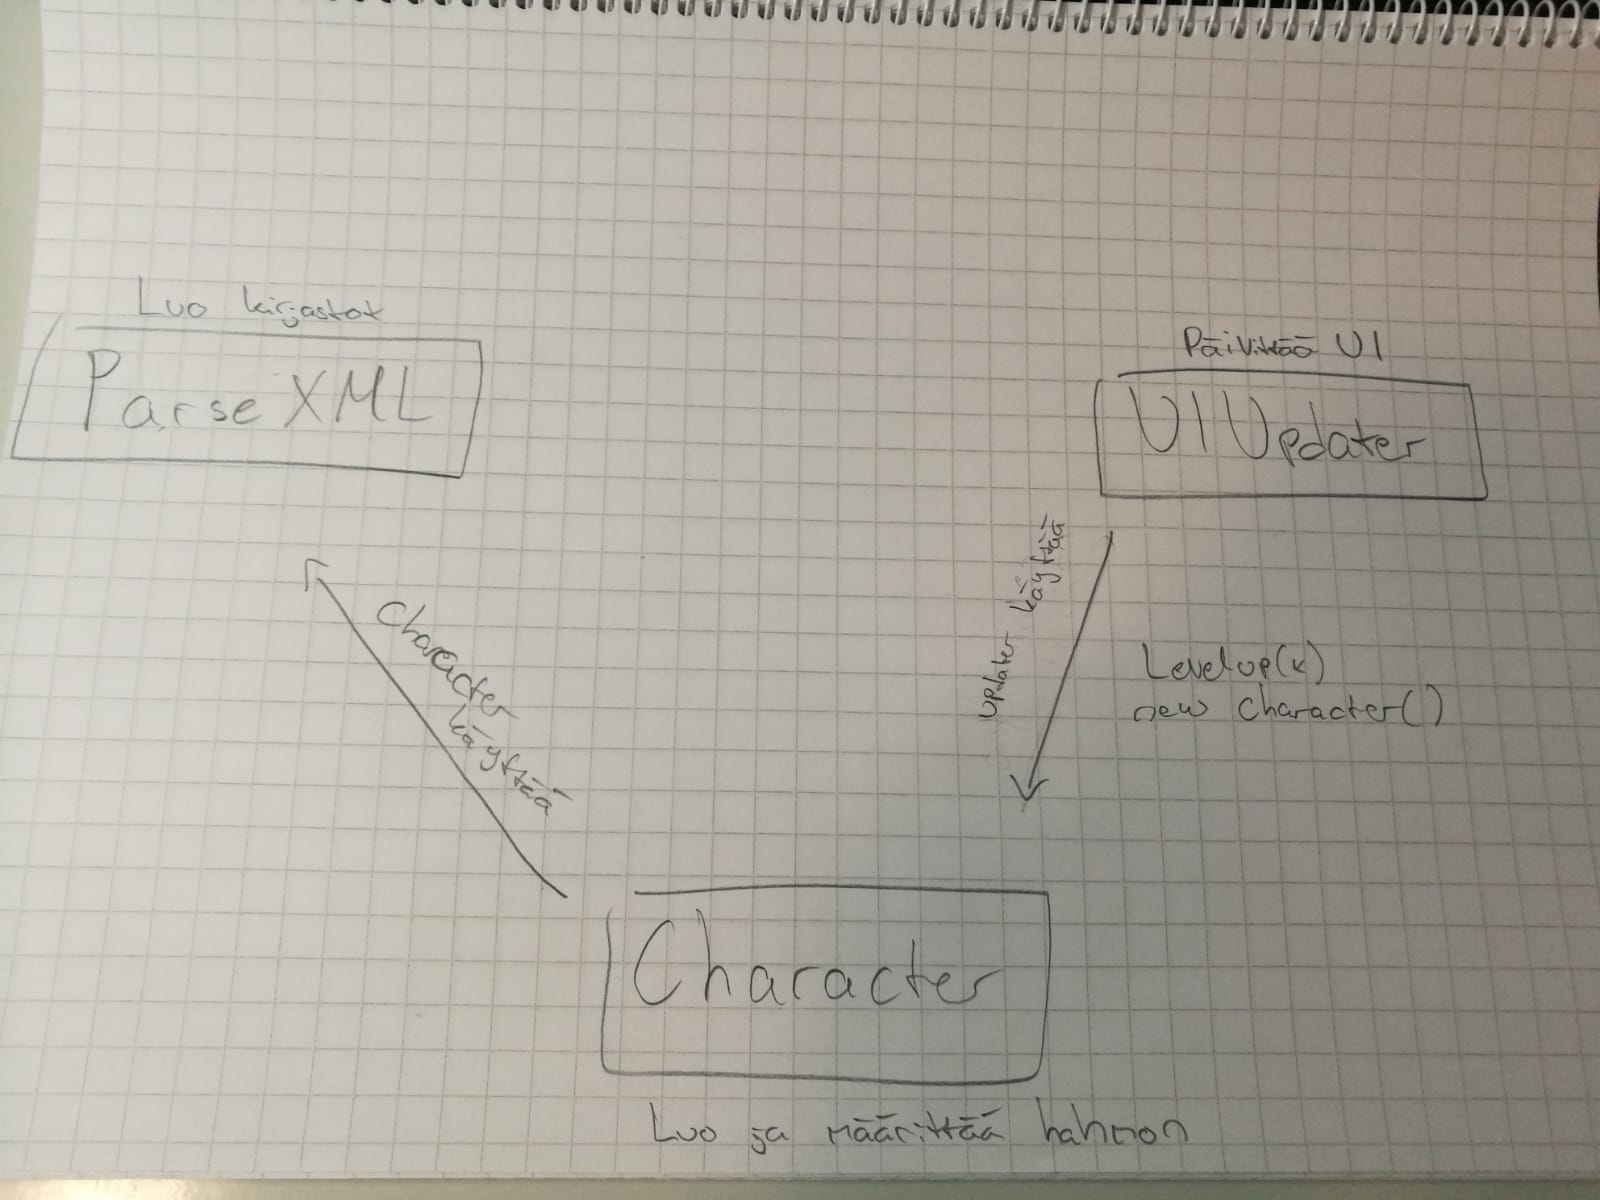 Luo kirjastot
Parse XML
Päivittää UI
UI Updater
Character
käyttää
Updater käyttää
Levelup(x)
new character()
Character
Luo ja määrittää hahmon